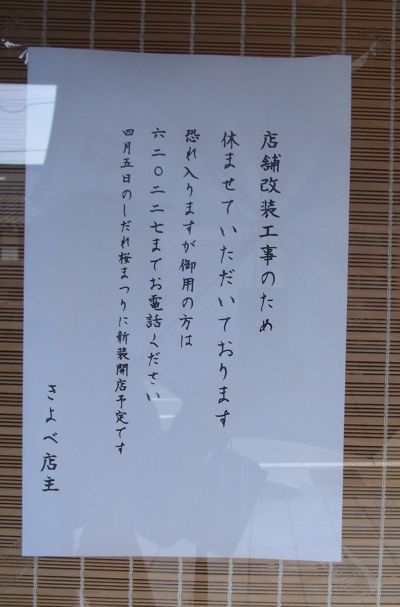 店舗改装工事のため
休ませていただいております
恐れ入りますが御用の方は
六二〇二二七までお電話ください
四月五日のしだれ桜まつりに新装開店予定です
さよべ店主